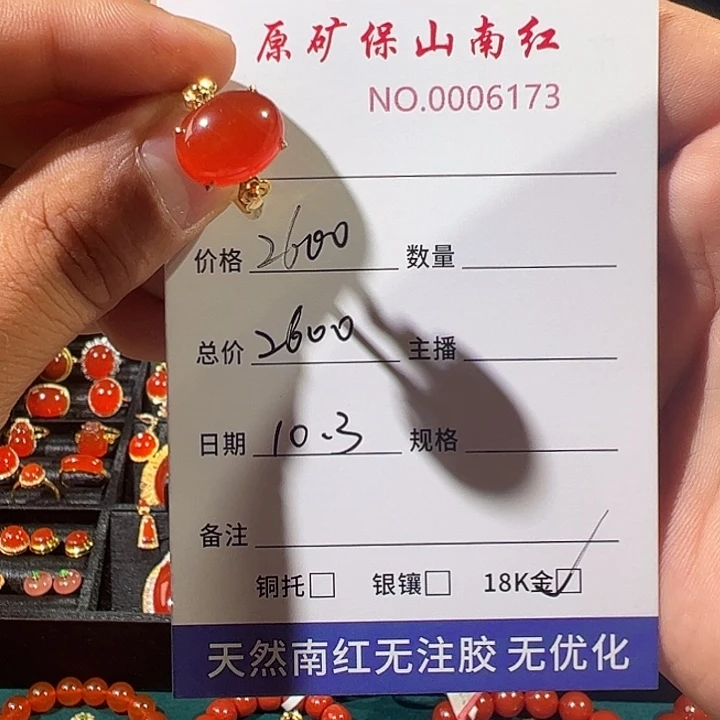 原矿保山南红
NO.0006173
价格 2600 数量
总价 2600 主播
日期 10.3 规格
备注
铜托□ 银镶□ 18K金☑
天然南红无注胶 无优化